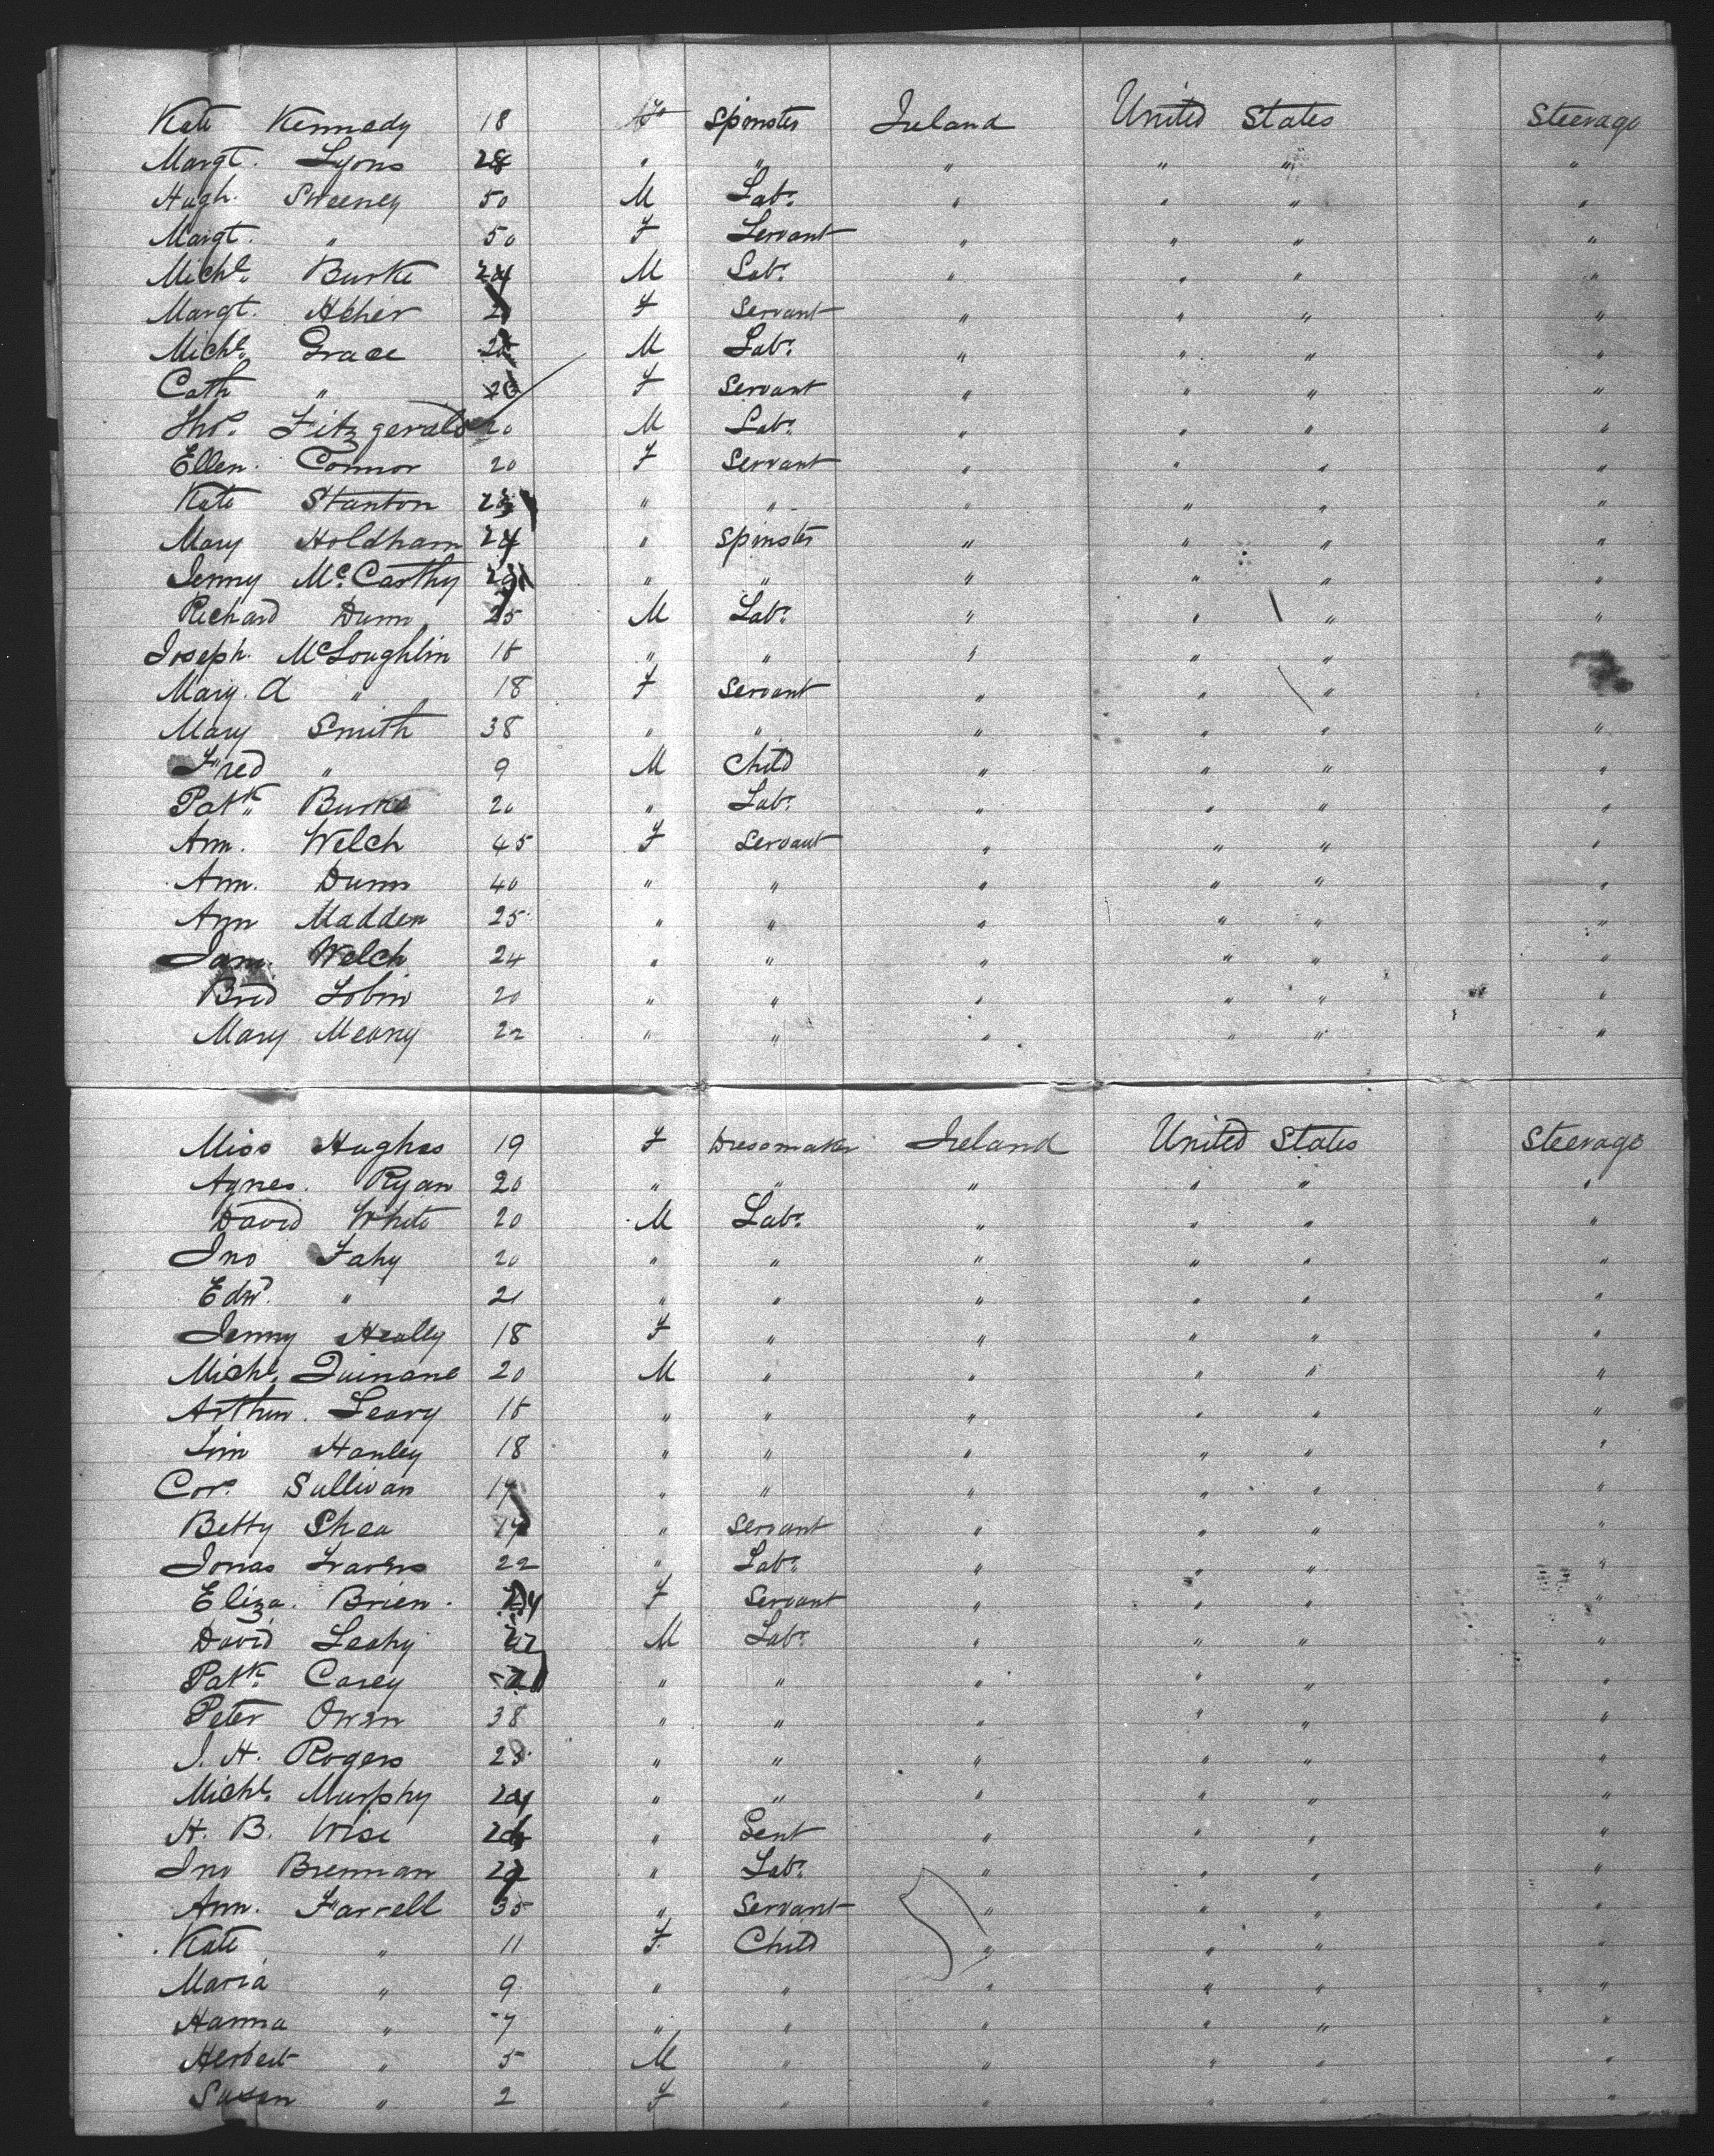 Kate Kennedy 18 F Spinster Ireland United States Steerage
Margt. Lyons 28 " " " " " "
Hugh. Sweeney 50 M Labr. " " " "
Margt. " 50 F Servant " " " "
Michl. Burke 24 M Labr. " " " "
Margt. F Servant " " " "
Michl. Grace M Labr. " " " "
Cath " F Servant " " " "
Thos. Fitzgerald 20 M Labr. " " " "
Ellen. Connor 20 F Servant " " " "
Kate Stanton " " " " " "
Mary Holdham 24 " Spinster " " " "
Jenny McCarthy " " " " " "
Richard Dunn 25 M Labr. " " " "
Joseph. McLoughlin 18 " " " " "
Mary. A " 18 F Servant " " "
Mary Smith 38 " " " " " "
Fred " 9 M Child " " " "
Patk. Burke 20 " Labr. " " " "
Ann. Welch 45 F Servant " " " "
Ann. Dunn 40 " " " " " "
Ann Madden 25 " " " " " "
Welch 24 " " " " " "
Brid Tobin 20 " " " " " "
Mary Meany 22 " " " " " "
Miss Hughes 19 F Dressmaker Ireland United States Steerage
Agnes. Ryan 20 " " " " " "
David White 20 M Labr. " " " "
Jno Fahy 20 " " " " " "
Edwd. " 21 " " " " " "
Jenny Heally 18 F " " " " "
Michl. Quinane 20 M " " " " "
Arthur. Leary 18 " " " " " "
Tim Hanley 18 " " " " " "
Cors. Sullivan 17 " " " " " "
Betty Shea 17 " Servant " " " "
Jonas Travers 22 " Labr. " " " "
Eliza. Brien. 24 F Servant " " " "
David Leahy M Labr. " " " "
Patk. Casey " " " " " "
Peter Owen 38 " " " " " "
J. H. Rogers 28 " " " " " "
Michl. Murphy 24 " " " " " "
H. B. Wise " Gent " " " "
Jno Brennan " Labr. " " " "
Ann. Farrell 35 " Servant " " " "
Kate " 11 F. Child " " " "
Maria " 9 " " " " " "
Hanna " 7 " " " " " "
Herbert " 5 M " " " " "
Susan " 2 F " " " " "